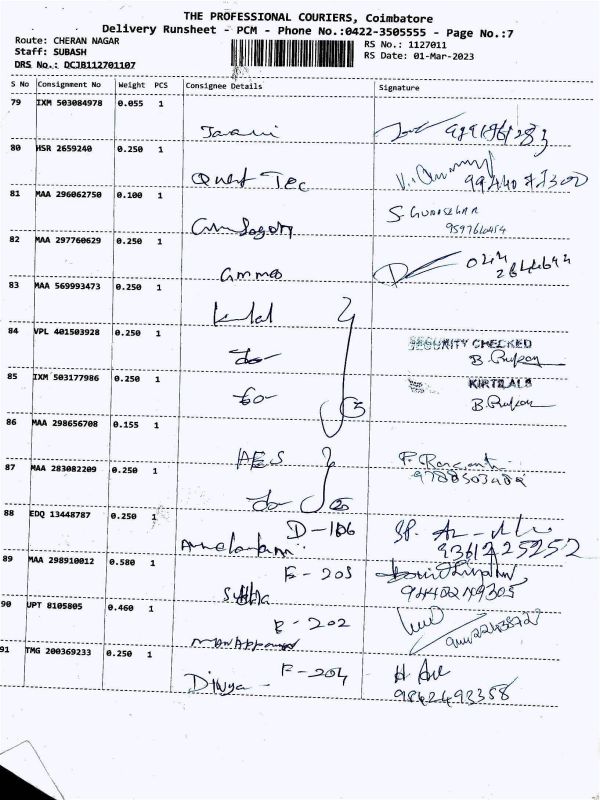 THE PROFESSIONAL COURIERS, Coimbatore
Delivery Runsheet - PCM - Phone No.:0422-3505555 - Page No.:7
Route: CHERAN NAGAR
RS No.: 1127011
Staff: SUBASH
RS Date: 01-Mar-2023
DRS No.: DCJB112701107
S No Consignment No Weight PCS Consignee Details Signature
79 IXM 503084978 0.055 1
80 HSR 2659240 0.250 1
Quest Tec
81 MAA 296062750 0.100 1
S. GUNASEKAR
82 MAA 297760629 0.250 1
Ammas
83 MAA 569993473 0.250 1
84 VPL 401503928 0.250 1
SECURITY CHECKED
-do-
85 IXM 503177986 0.250 1
KIRTILALS
-do-
86 MAA 298656708 0.155 1
AES
87 MAA 283082209 0.250 1
-do-
88 EDQ 13448787 0.250 1
D-106
9361225252
89 MAA 298910012 0.580 1
F-203
9440249305
90 UPT 8105805 0.460 1
B-202
91 TMG 200369233 0.250 1
F-204
Divya
9842493358